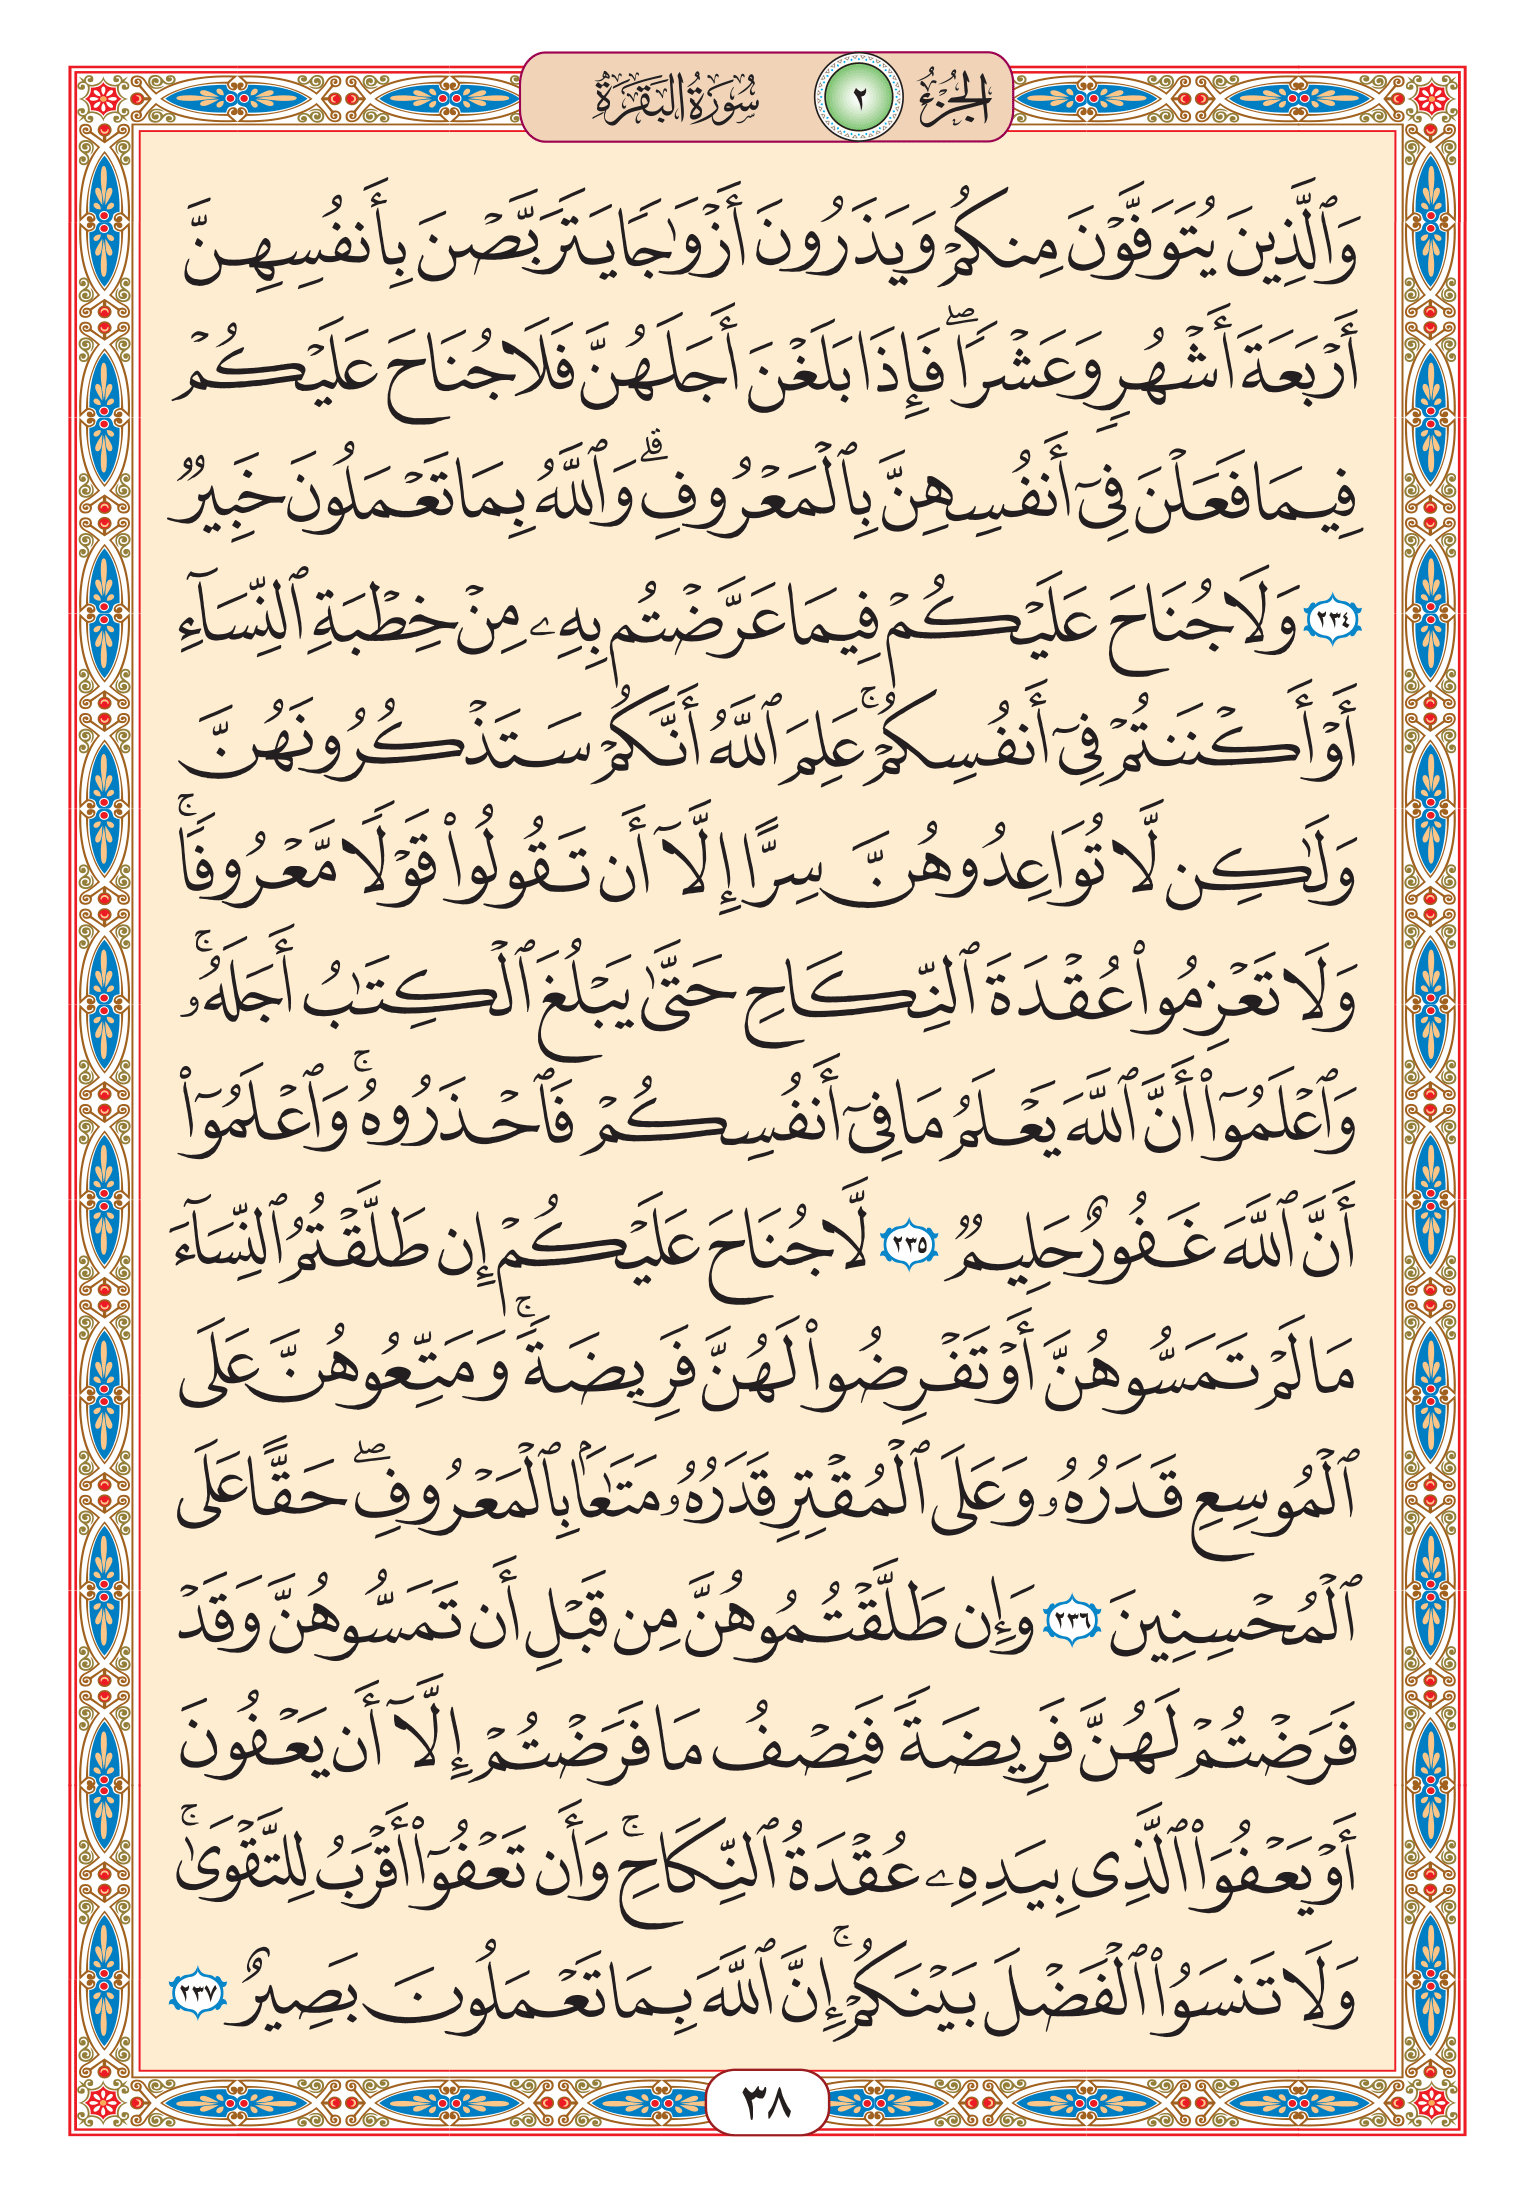 الجزء ٢ سورة البقرة
وَٱلَّذِينَ يُتَوَفَّوۡنَ مِنكُمۡ وَيَذَرُونَ أَزۡوَٰجٗا يَتَرَبَّصۡنَ بِأَنفُسِهِنَّ
أَرۡبَعَةَ أَشۡهُرٖ وَعَشۡرٗاۖ فَإِذَا بَلَغۡنَ أَجَلَهُنَّ فَلَا جُنَاحَ عَلَيۡكُمۡ
فِيمَا فَعَلۡنَ فِيٓ أَنفُسِهِنَّ بِٱلۡمَعۡرُوفِۗ وَٱللَّهُ بِمَا تَعۡمَلُونَ خَبِيرٞ
٢٣٤ وَلَا جُنَاحَ عَلَيۡكُمۡ فِيمَا عَرَّضۡتُم بِهِۦ مِنۡ خِطۡبَةِ ٱلنِّسَآءِ
أَوۡ أَكۡنَنتُمۡ فِيٓ أَنفُسِكُمۡۚ عَلِمَ ٱللَّهُ أَنَّكُمۡ سَتَذۡكُرُونَهُنَّ
وَلَٰكِن لَّا تُوَاعِدُوهُنَّ سِرًّا إِلَّآ أَن تَقُولُواْ قَوۡلٗا مَّعۡرُوفٗاۚ
وَلَا تَعۡزِمُواْ عُقۡدَةَ ٱلنِّكَاحِ حَتَّىٰ يَبۡلُغَ ٱلۡكِتَٰبُ أَجَلَهُۥۚ
وَٱعۡلَمُوٓاْ أَنَّ ٱللَّهَ يَعۡلَمُ مَا فِيٓ أَنفُسِكُمۡ فَٱحۡذَرُوهُۚ وَٱعۡلَمُوٓاْ
أَنَّ ٱللَّهَ غَفُورٌ حَلِيمٞ ٢٣٥ لَّا جُنَاحَ عَلَيۡكُمۡ إِن طَلَّقۡتُمُ ٱلنِّسَآءَ
مَا لَمۡ تَمَسُّوهُنَّ أَوۡ تَفۡرِضُواْ لَهُنَّ فَرِيضَةٗۚ وَمَتِّعُوهُنَّ عَلَى
ٱلۡمُوسِعِ قَدَرُهُۥ وَعَلَى ٱلۡمُقۡتِرِ قَدَرُهُۥ مَتَٰعَۢا بِٱلۡمَعۡرُوفِۖ حَقًّا عَلَى
ٱلۡمُحۡسِنِينَ ٢٣٦ وَإِن طَلَّقۡتُمُوهُنَّ مِن قَبۡلِ أَن تَمَسُّوهُنَّ وَقَدۡ
فَرَضۡتُمۡ لَهُنَّ فَرِيضَةٗ فَنِصۡفُ مَا فَرَضۡتُمۡ إِلَّآ أَن يَعۡفُونَ
أَوۡ يَعۡفُوَاْ ٱلَّذِي بِيَدِهِۦ عُقۡدَةُ ٱلنِّكَاحِۚ وَأَن تَعۡفُوٓاْ أَقۡرَبُ لِلتَّقۡوَىٰۚ
وَلَا تَنسَوُاْ ٱلۡفَضۡلَ بَيۡنَكُمۡۚ إِنَّ ٱللَّهَ بِمَا تَعۡمَلُونَ بَصِيرٌ ٢٣٧
٣٨